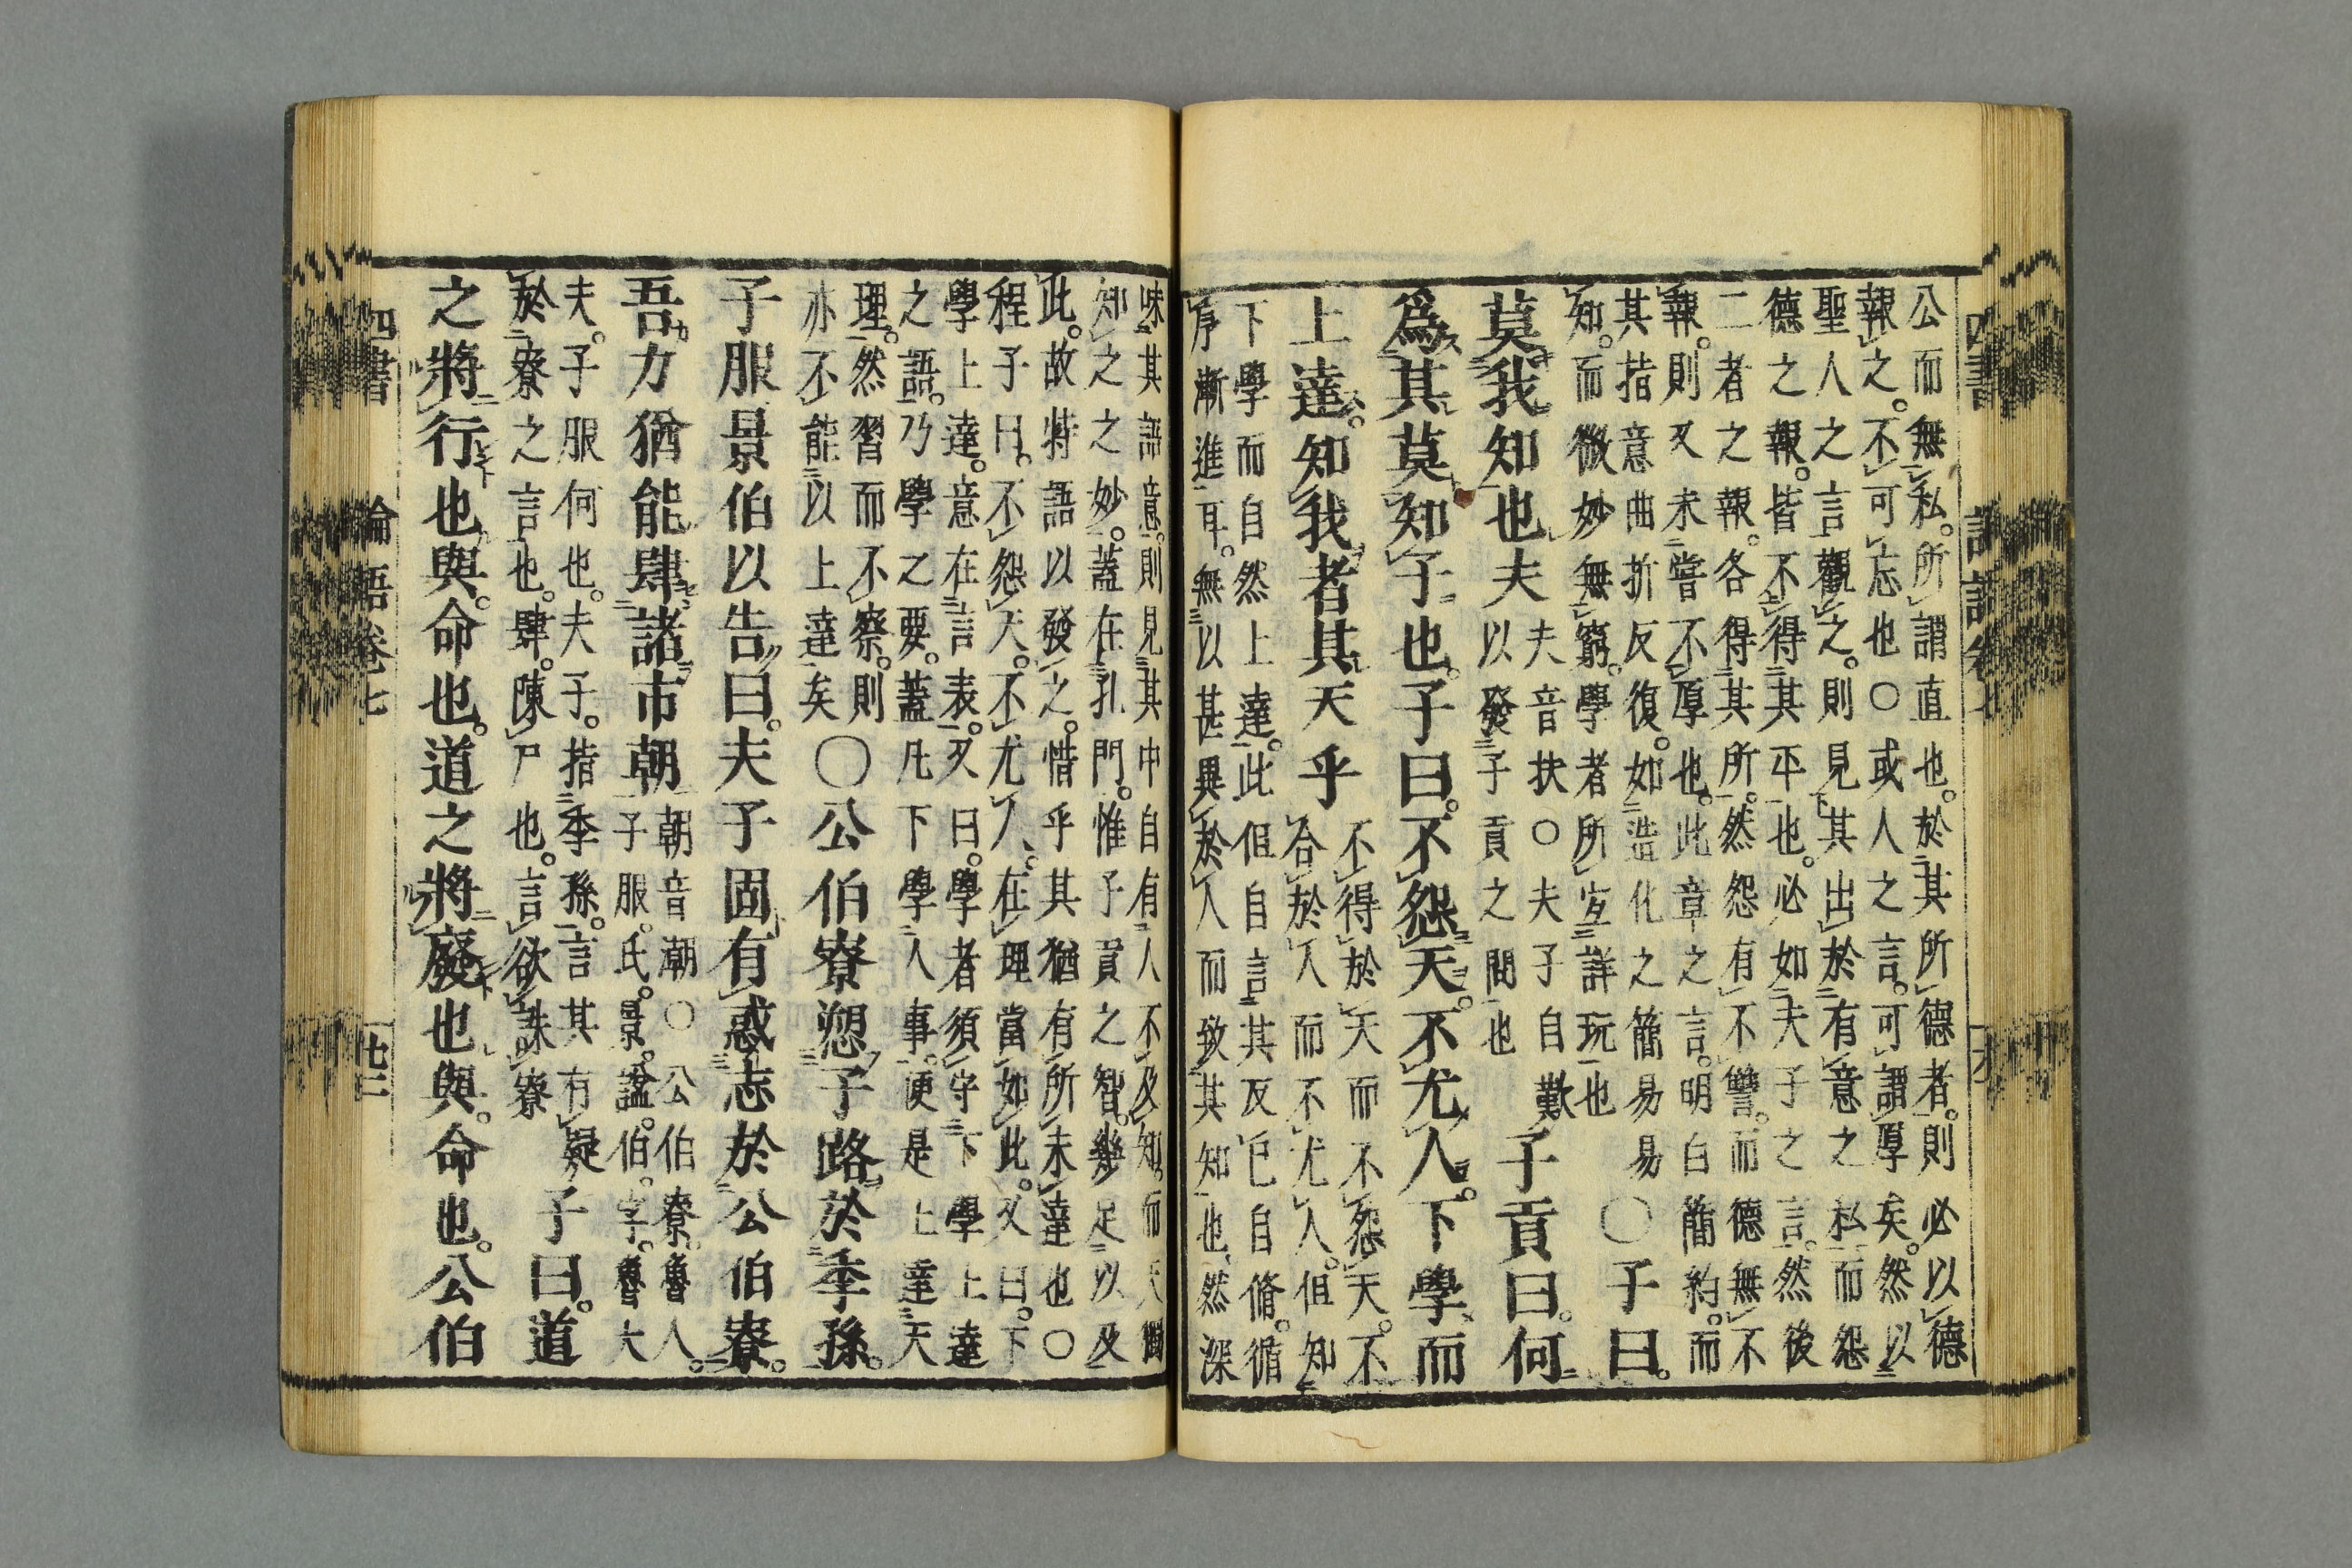 公而無私。所謂直也。於其所德者。則必以德
報之。不可忘也○或人之言。可謂厚矣。然以
聖人之言觀之。則見其出於有意之私。而怨
德之報。皆不得其平也。必如夫子之言。然後
二者之報。各得其所。然怨有不讐。而德無不
報。則又未嘗不厚也。此章之言。明白簡約。而
其指意曲折反復。如造化之簡易易
知。而微妙無窮。學者所宜詳玩也
○子曰。
莫我知也夫
夫音扶○夫子自歎
以發子貢之問也
子貢曰。何
爲其莫知子也。子曰。不怨天。不尤人。下學而
上達。知我者其天乎
不得於天而不怨天。不
合於人而不尤人。但知
下學而自然上達。此但自言其反已自脩。循
序漸進耳。無以甚異於人而致其知也。然深
味其語意。則見其中自有人不及知。而天獨
知之之妙。蓋在孔門。惟子貢之智。幾足以及
此。故特語以發之。惜乎其猶有所未達也○
程子曰。不怨天。不尤人。在理當如此。又曰。下
學上達。意在言表。又曰。學者須守下學上達
之語。乃學之要。蓋凡下學人事。便是上達天
理。然習而不察。則
亦不能以上達矣
○公伯寮愬子路於季孫。
子服景伯以告曰。夫子固有惑志於公伯寮。
吾力猶能肆諸市朝
朝音潮○公伯寮。魯人。
子服。氏。景。諡。伯。字。魯大
夫。子服何也。夫子。指季孫。言其有疑
於寮之言也。肆。陳尸也。言欲誅寮
子曰。道
之將行也與。命也。道之將廢也與。命也。公伯
四書
論語卷七